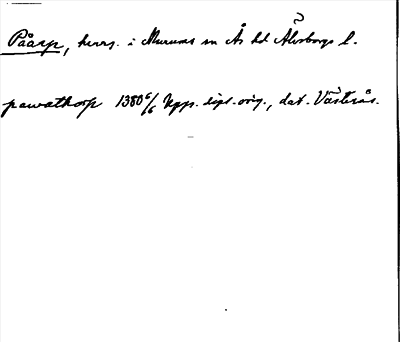 Påarp, herrg. i Murums sn Ås hd Älvsborgs l.
pawathorp 1380 6/6 Upps. dipl. orig., dat. Västerås.